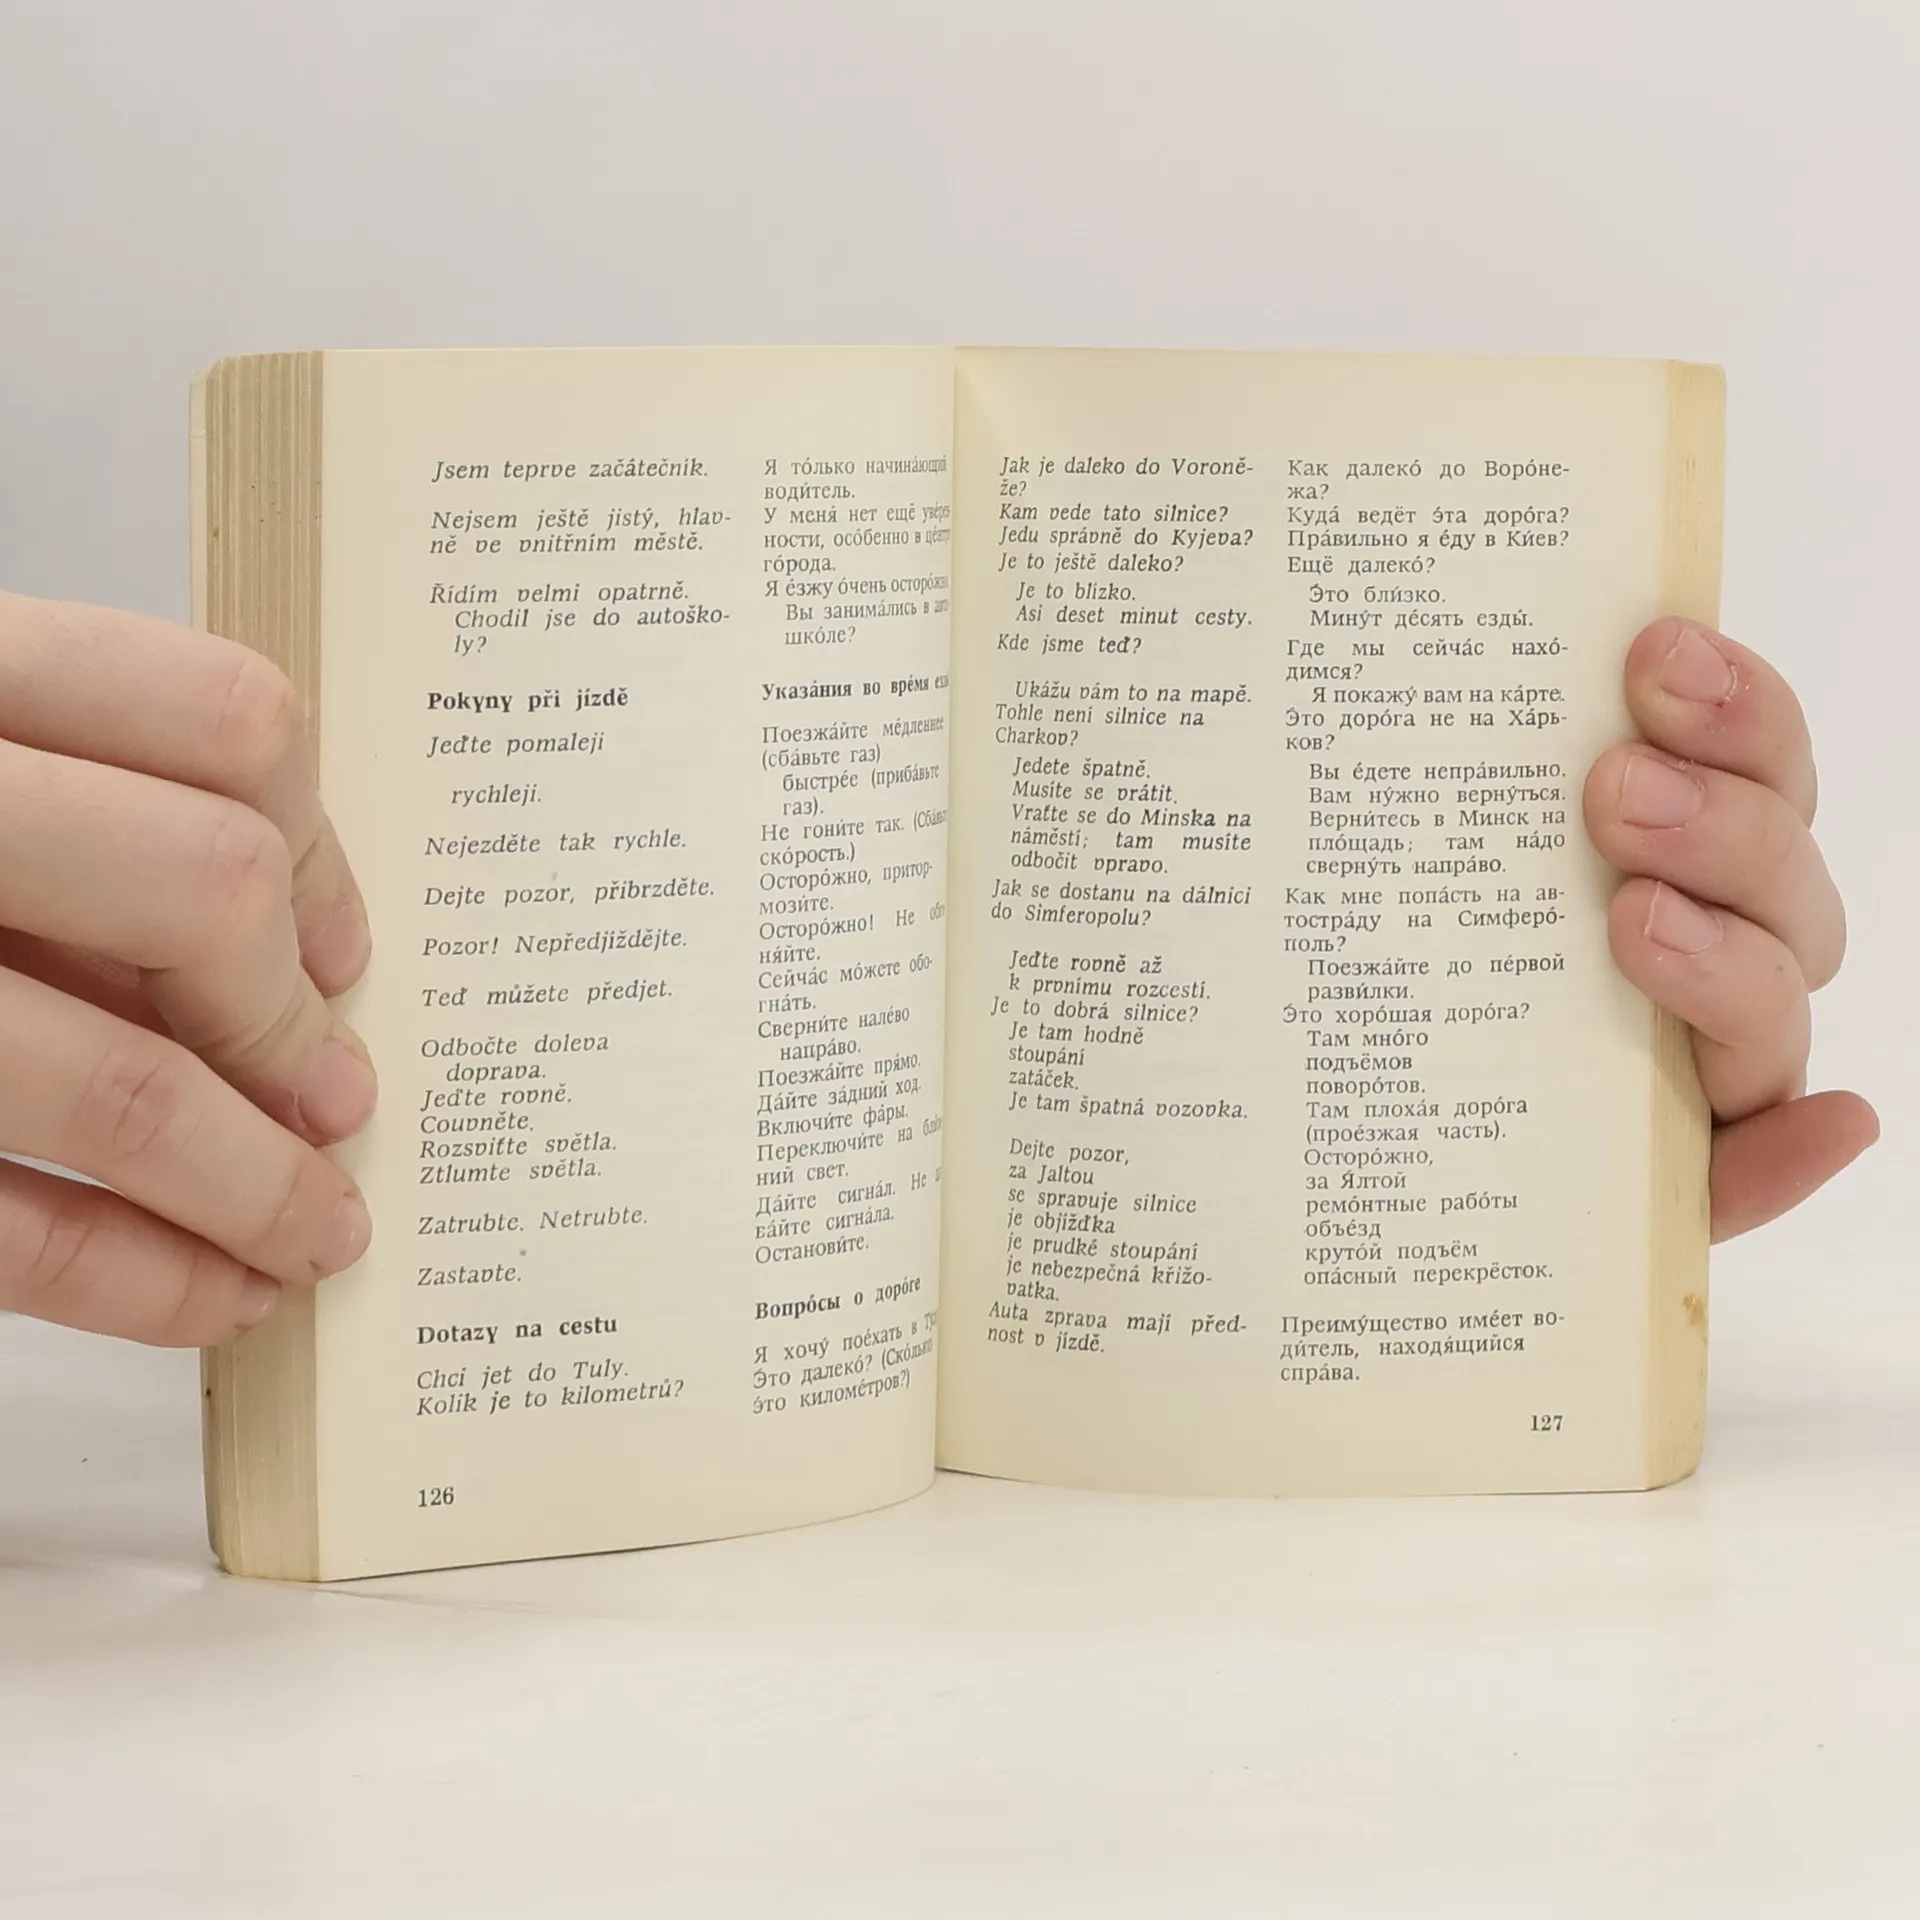 Jsem teprve začátečník.
Nejsem ještě jistý, hlav-
ně ve vnitřním městě.
Řídím velmi opatrně.
Chodil jse do autoško-
ly?
Pokyny při jízdě
Jeďte pomaleji
rychleji.
Nejezděte tak rychle.
Dejte pozor, přibrzděte.
Pozor! Nepředjíždějte.
Teď můžete předjet.
Odbočte doleva
doprava.
Jeďte rovně.
Couvněte.
Rozsviťte světla.
Ztlumte světla.
Zatrubte. Netrubte.
Zastavte.
Dotazy na cestu
Chci jet do Tuly.
Kolik je to kilometrů?
126
Я то́лько начина́ющий
води́тель.
У меня́ нет ещё уве́рен-
ности, осо́бенно в це́нтре
го́рода.
Я е́зжу о́чень осторо́жно.
Вы занима́лись в авто-
шко́ле?
Указа́ния во вре́мя езды
Поезжа́йте ме́дленнее
(сба́вьте газ)
быстре́е (приба́вьте
газ).
Не гони́те так. (Сба́вьте
ско́рость.)
Осторо́жно, притор-
мози́те.
Осторо́жно! Не обго-
ня́йте.
Сейча́с мо́жете обо-
гна́ть.
Сверни́те нале́во
напра́во.
Поезжа́йте пря́мо.
Да́йте за́дний ход.
Включи́те фа́ры.
Переключи́те на ближ-
ний свет.
Да́йте сигна́л. Не
ва́йте сигна́ла.
Останови́те.
Вопро́сы о доро́ге
Я хочу́ пое́хать в Ту́лу.
Э́то далеко́? (Ско́лько
э́то киломе́тров?)
Jak je daleko do Voroně-
že?
Kam vede tato silnice?
Jedu správně do Kyjeva?
Je to ještě daleko?
Je to blízko.
Asi deset minut cesty.
Kde jsme teď?
Ukážu vám to na mapě.
Tohle není silnice na
Charkov?
Jedete špatně.
Musíte se vrátit.
Vraťte se do Minska na
náměstí; tam musíte
odbočit vpravo.
Jak se dostanu na dálnici
do Simferopolu?
Jeďte rovně až
k prvnímu rozcestí.
Je to dobrá silnice?
Je tam hodně
stoupání
zatáček.
Je tam špatná vozovka.
Dejte pozor,
za Jaltou
se spravuje silnice
je objížďka
je prudké stoupání
je nebezpečná křižo-
vatka.
Auta zprava mají před-
nost v jízdě.
Как далеко́ до Воро́не-
жа?
Куда́ ведёт э́та доро́га?
Пра́вильно я е́ду в Ки́ев?
Ещё далеко́?
Э́то бли́зко.
Мину́т де́сять езды́.
Где мы сейча́с нахо́-
димся?
Я покажу́ вам на ка́рте.
Э́то доро́га не на Ха́рь-
ков?
Вы е́дете непра́вильно.
Вам ну́жно верну́ться.
Верни́тесь в Минск на
пло́щадь; там на́до
сверну́ть напра́во.
Как мне попа́сть на ав-
тостра́ду на Симферо́-
поль?
Поезжа́йте до пе́рвой
разви́лки.
Э́то хоро́шая доро́га?
Там мно́го
подъёмов
поворо́тов.
Там плоха́я доро́га
(прое́зжая часть).
Осторо́жно,
за Я́лтой
ремо́нтные рабо́ты
объе́зд
круто́й подъём
опа́сный перекрёсток.
Преиму́щество име́ет во-
ди́тель, находя́щийся
спра́ва.
127